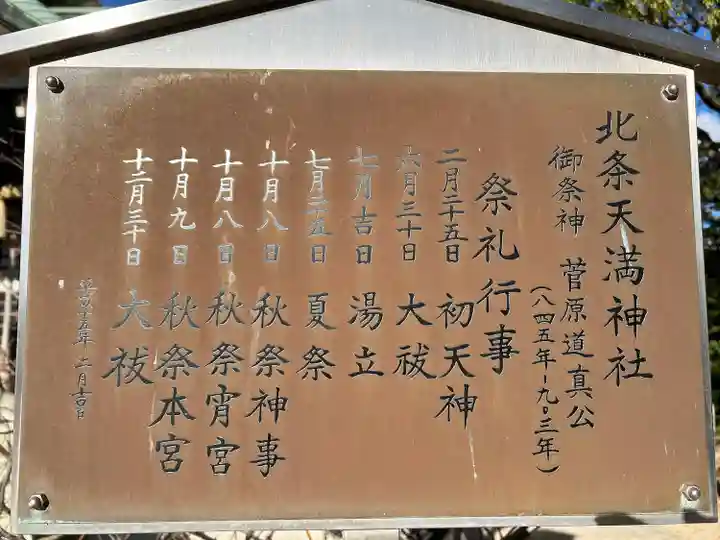 北条天満神社
御祭神 菅原道真公
(八四五年-九〇三年)
祭礼行事
二月二十五日 初天神
六月三十日 大祓
七月吉日 湯立
七月二十五日 夏祭
十月八日 秋祭神事
十月八日 秋祭宵宮
十月九日 秋祭本宮
十二月三十日 大祓